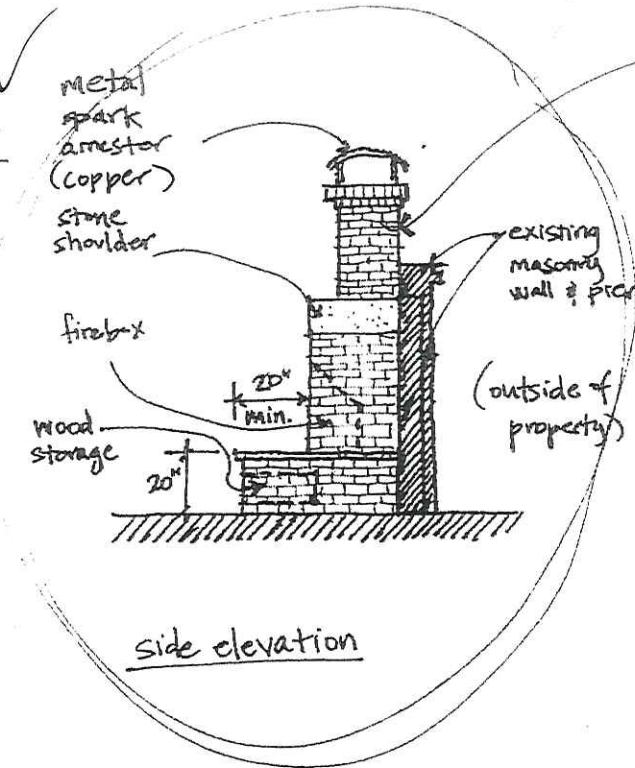 metal
spark
arrestor
(copper)
stone
shoulder
firebox
wood
storage
20"
min.
20"
existing
masonry
wall & pier
(outside of
property)
side elevation